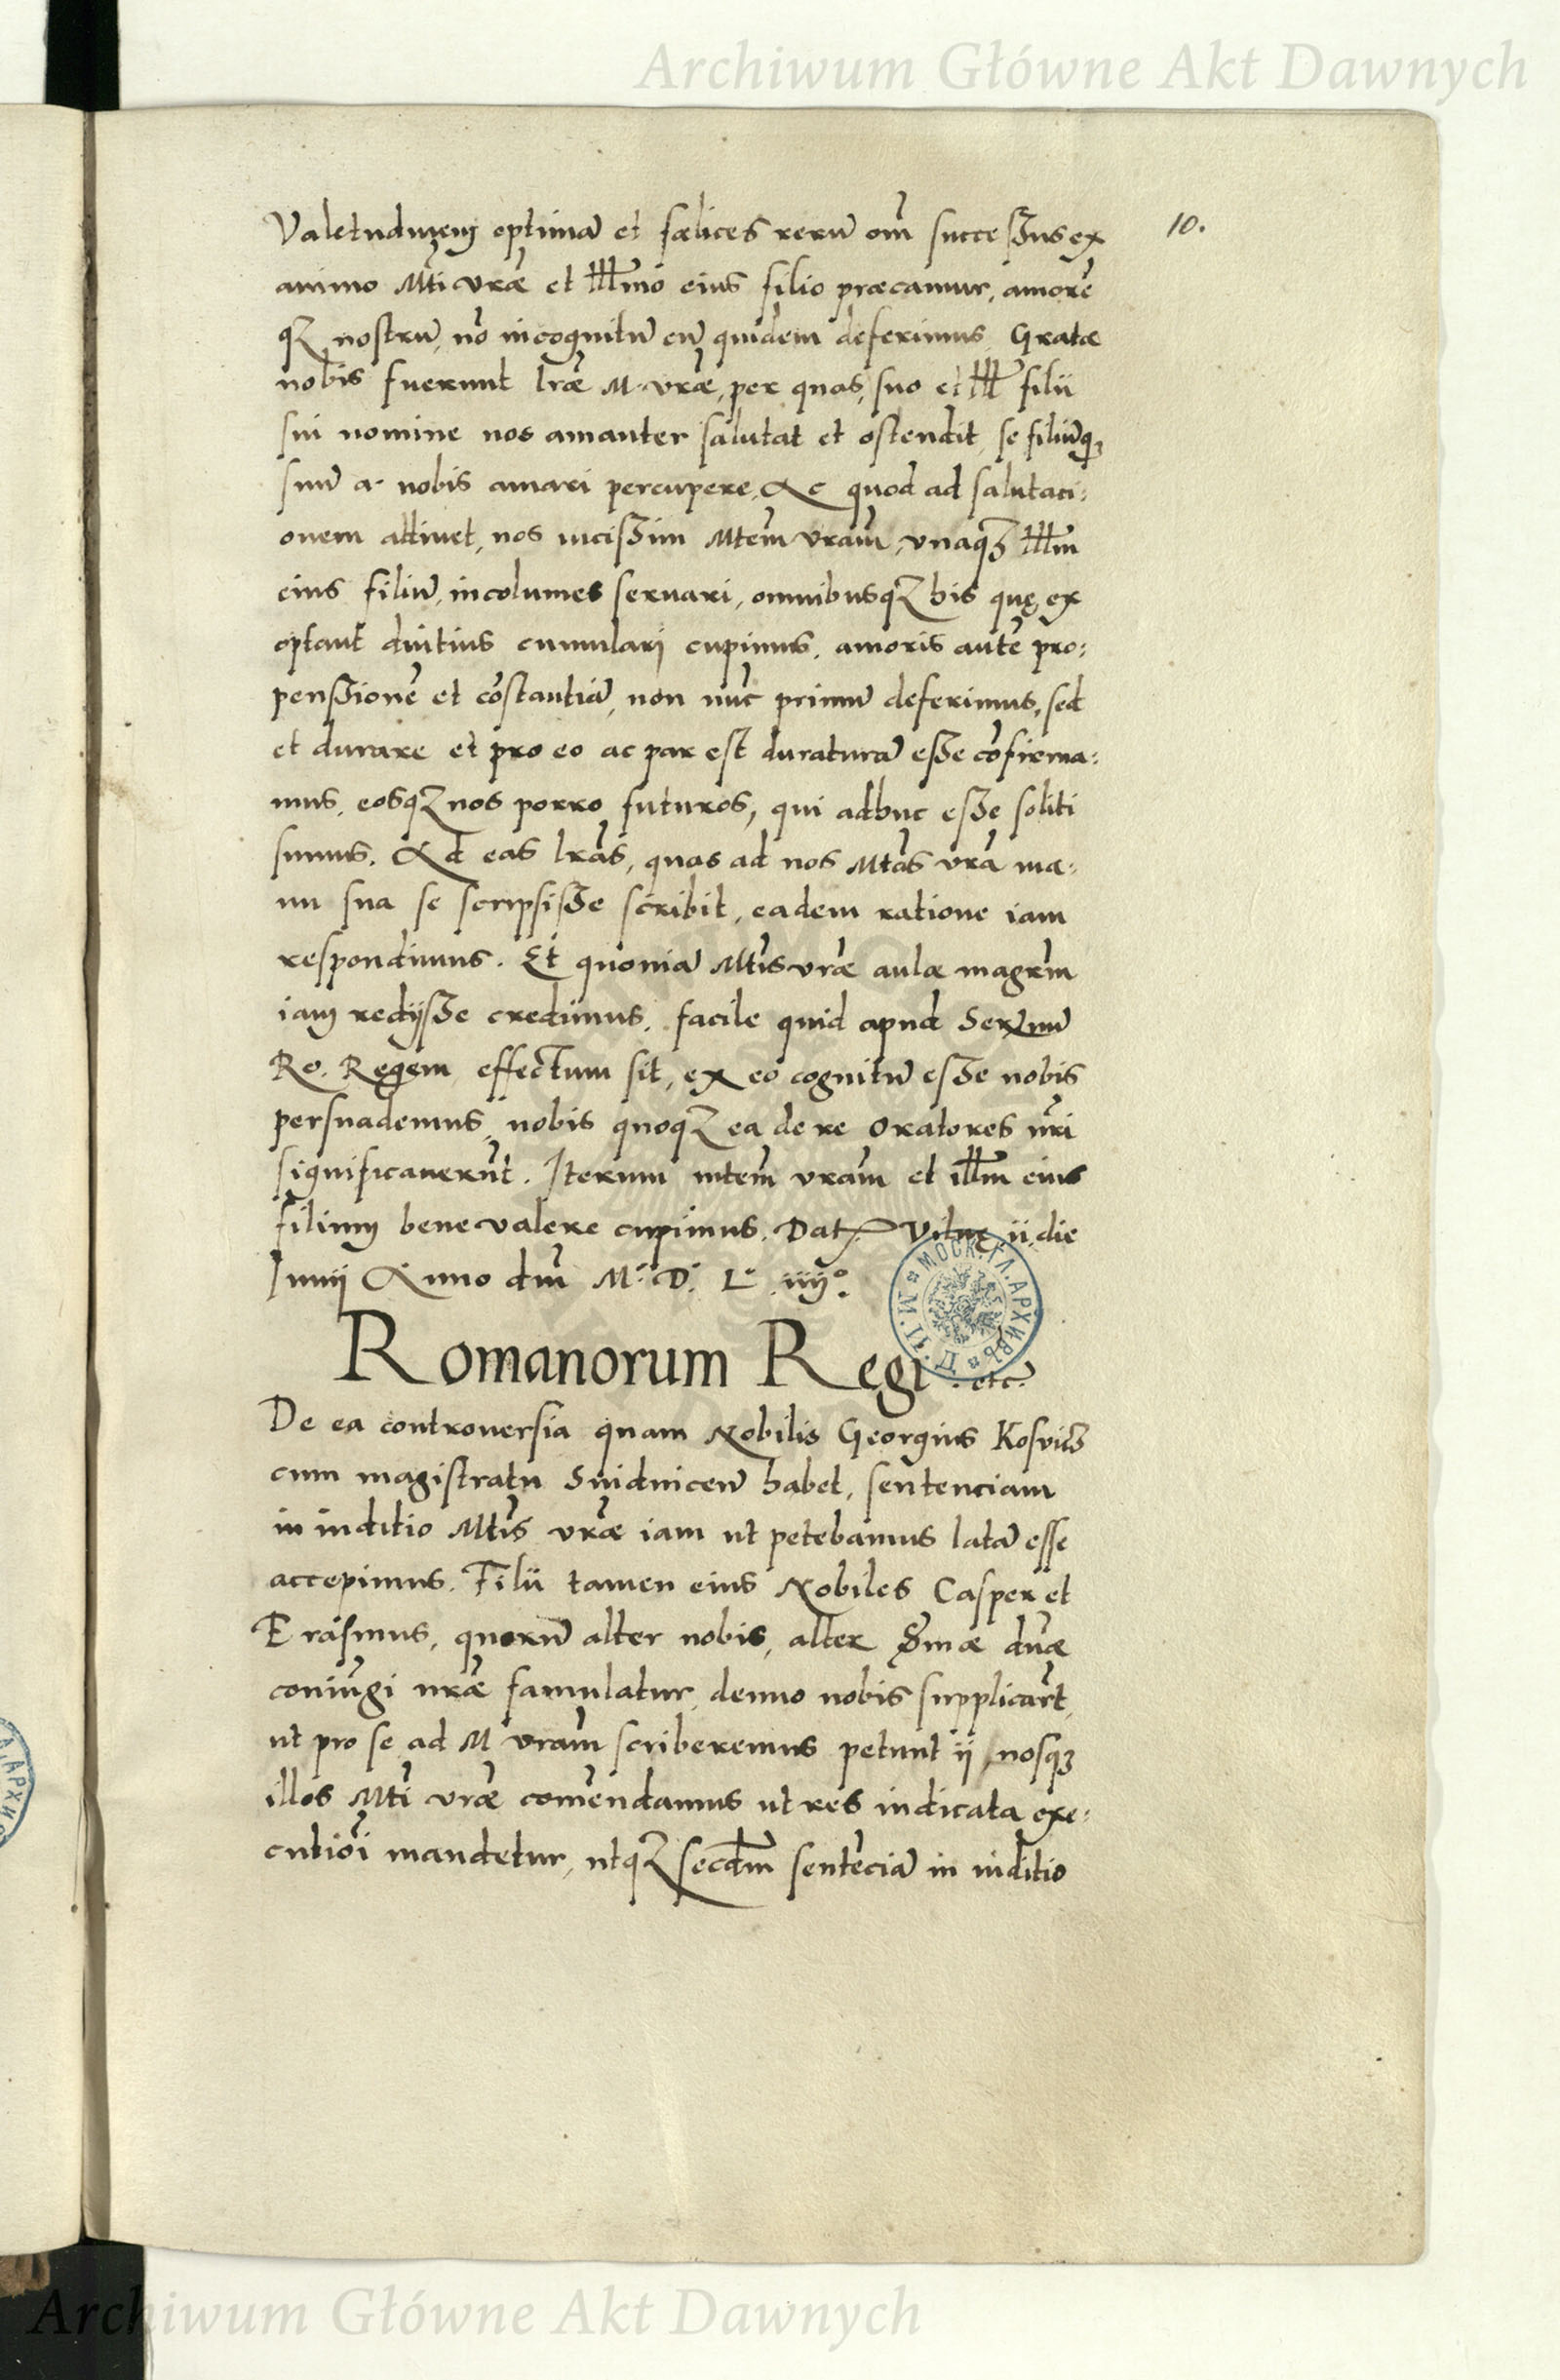 Archiwum Główne Akt Dawnych
10.
Valetudinem optimā et fœlices rerū om̄ successus ex
animo Mti vræ et Illmo eius filio præcamur, amorē
qȝ nostrū, nō incognitū eū quidem deferimus. Gratæ
nobis fuerunt lræ M. vræ, per quas, suo et Ill filii
sui nomine nos amanter salutat et ostendit, se filiūqȝ
suū a nobis amari percupere. Ac quod ad salutaci:
onem attinet, nos vicissim Mtem vram, vnaqȝ Illm
eius filiū, incolumes seruari, omnibusqȝ his quę ex
optant diutius cumulari cupimus. amoris autē pro:
penssionē et cōstantiā, non nūc primū deferimus, sed
et durare et pro eo ac par est duraturā esse cōfirma:
mus. eosqȝ nos porro futuros, qui adhuc esse soliti
sumus. Ad eas lras, quas ad nos Mtas vra ma:
nu sua se scripsisse scribit, eadem ratione iam
respondimus. Et quoniā Mtis vræ aulæ magrm
iam redijsse credimus, facile quid apud Serᵐū
Ro. Regem effectum sit, ex eo cognitū esse nobis
persuademus, nobis quoqȝ ea de re Oratores nri
significauerūt. Iterum mtem vram et illm eius
filium bene valere cupimus. Dat. Vilnę ii die
Junij Anno dm M. D. L. iiij°.
Romanorum Regi . etc.
De ea controuersia quam Nobilis Georgius
cum magistratu Suidnicen̄ habet, sentenciam
in iuditio Mtis vræ iam ut petebamus latā esse
accepimus. Filii tamen eius Nobiles Casper et
Erasmus, quorū alter nobis, alter Srmæ dnæ
coniugi nræ famulatur, denuo nobis supplicar̄t,
ut pro se ad M vram scriberemus petunt ij, nosqȝ
illos Mti vræ comēndamus ut res iudicata exe:
cutioi mandetur, utqȝ secdm sentēciā in iuditio
МОСК. ГЛ. АРХИВЪ
Archiwum Główne Akt Dawnych